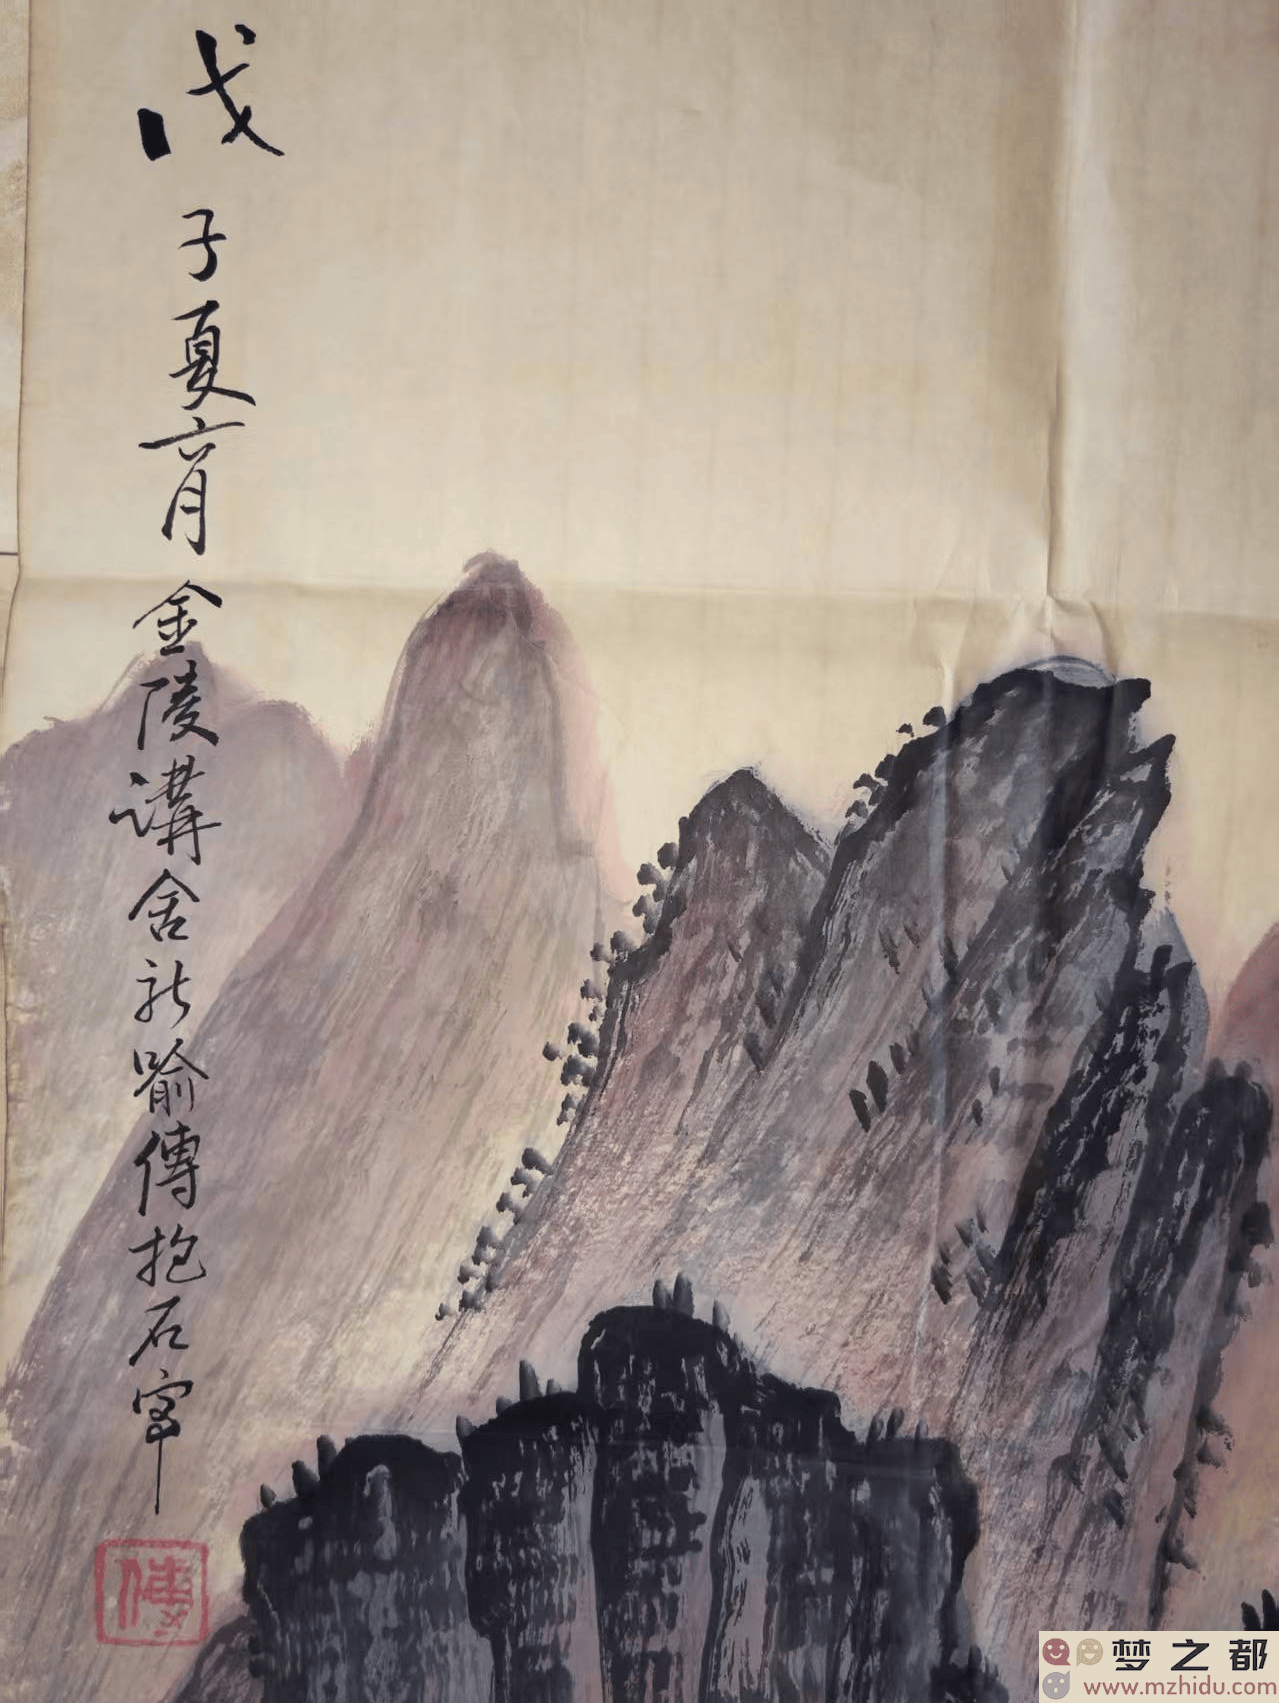 戊子夏六月金陵講舍新喻傅抱石寫
傅
梦之都
www.mzhidu.com